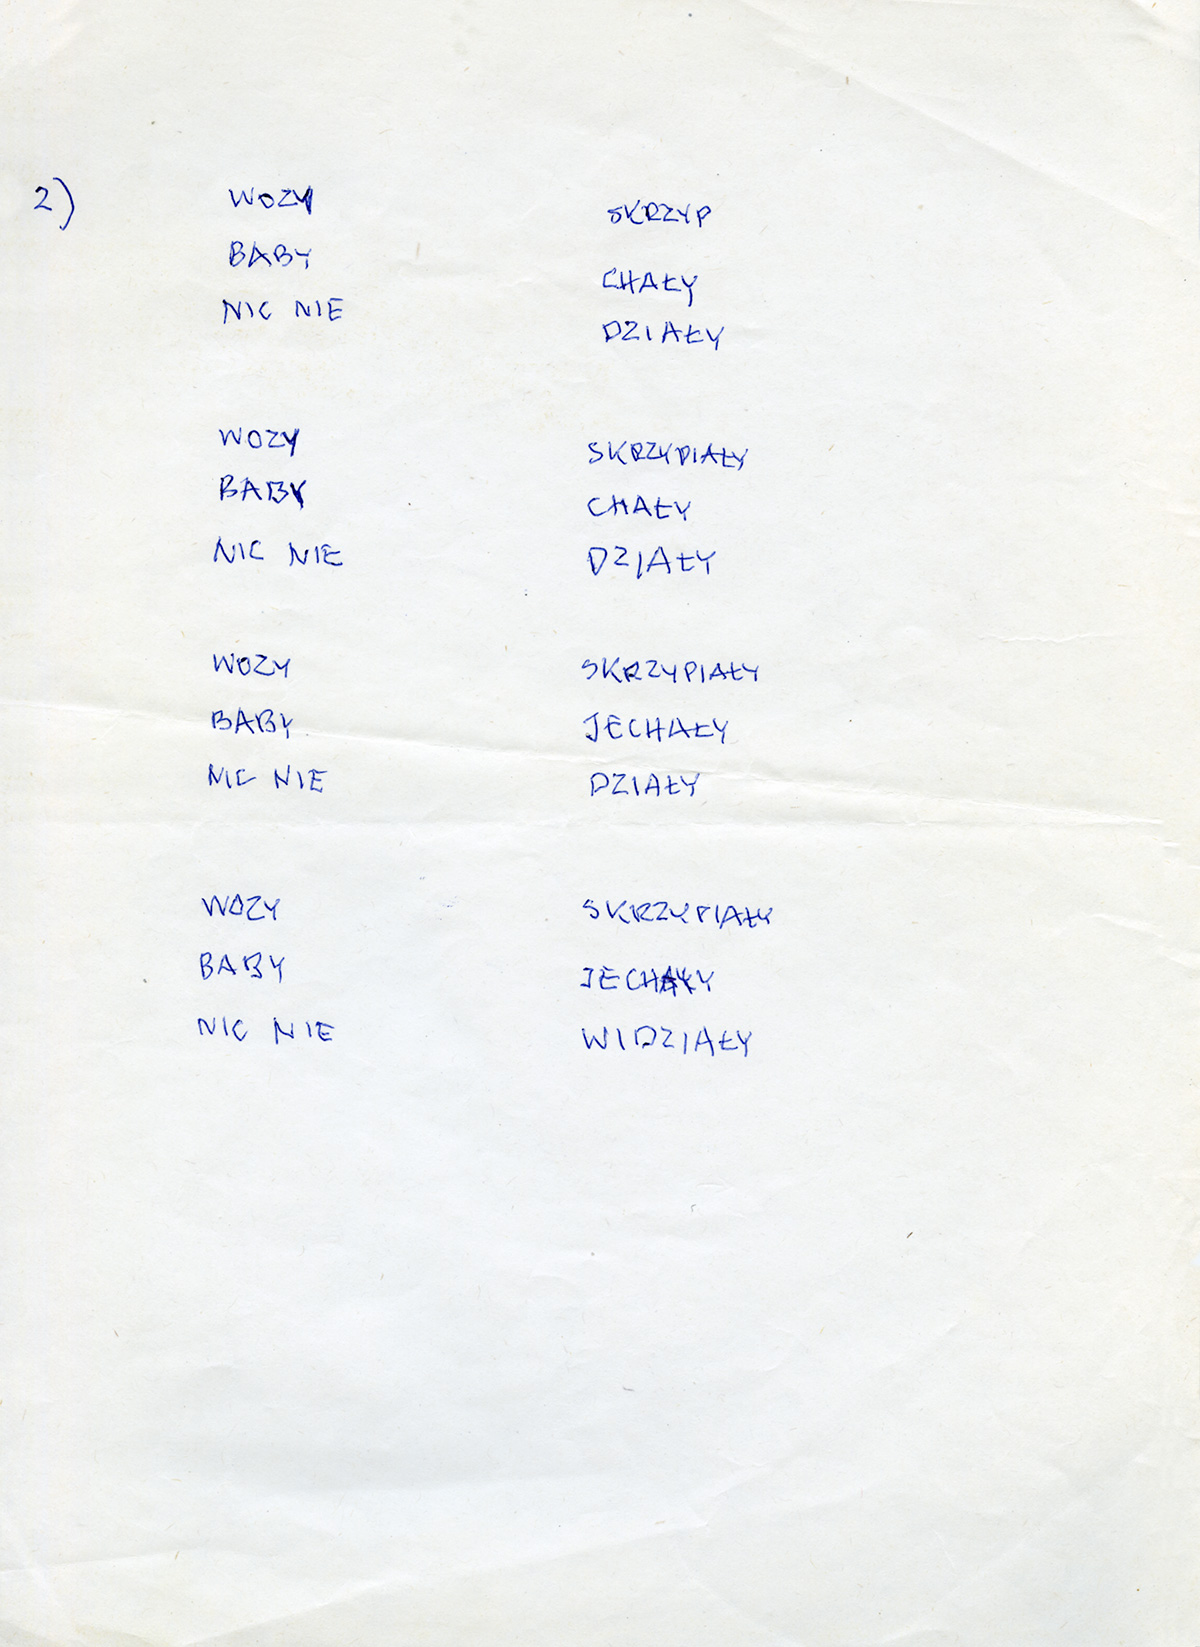 2) WOZY SKRZYP
BABY CHAŁY
NIC NIE DZIAŁY
WOZY SKRZYPIAŁY
BABY CHAŁY
NIC NIE DZIAŁY
WOZY SKRZYPIAŁY
BABY JECHAŁY
NIC NIE DZIAŁY
WOZY SKRZYPIAŁY
BABY JECHAŁY
NIC NIE WIDZIAŁY